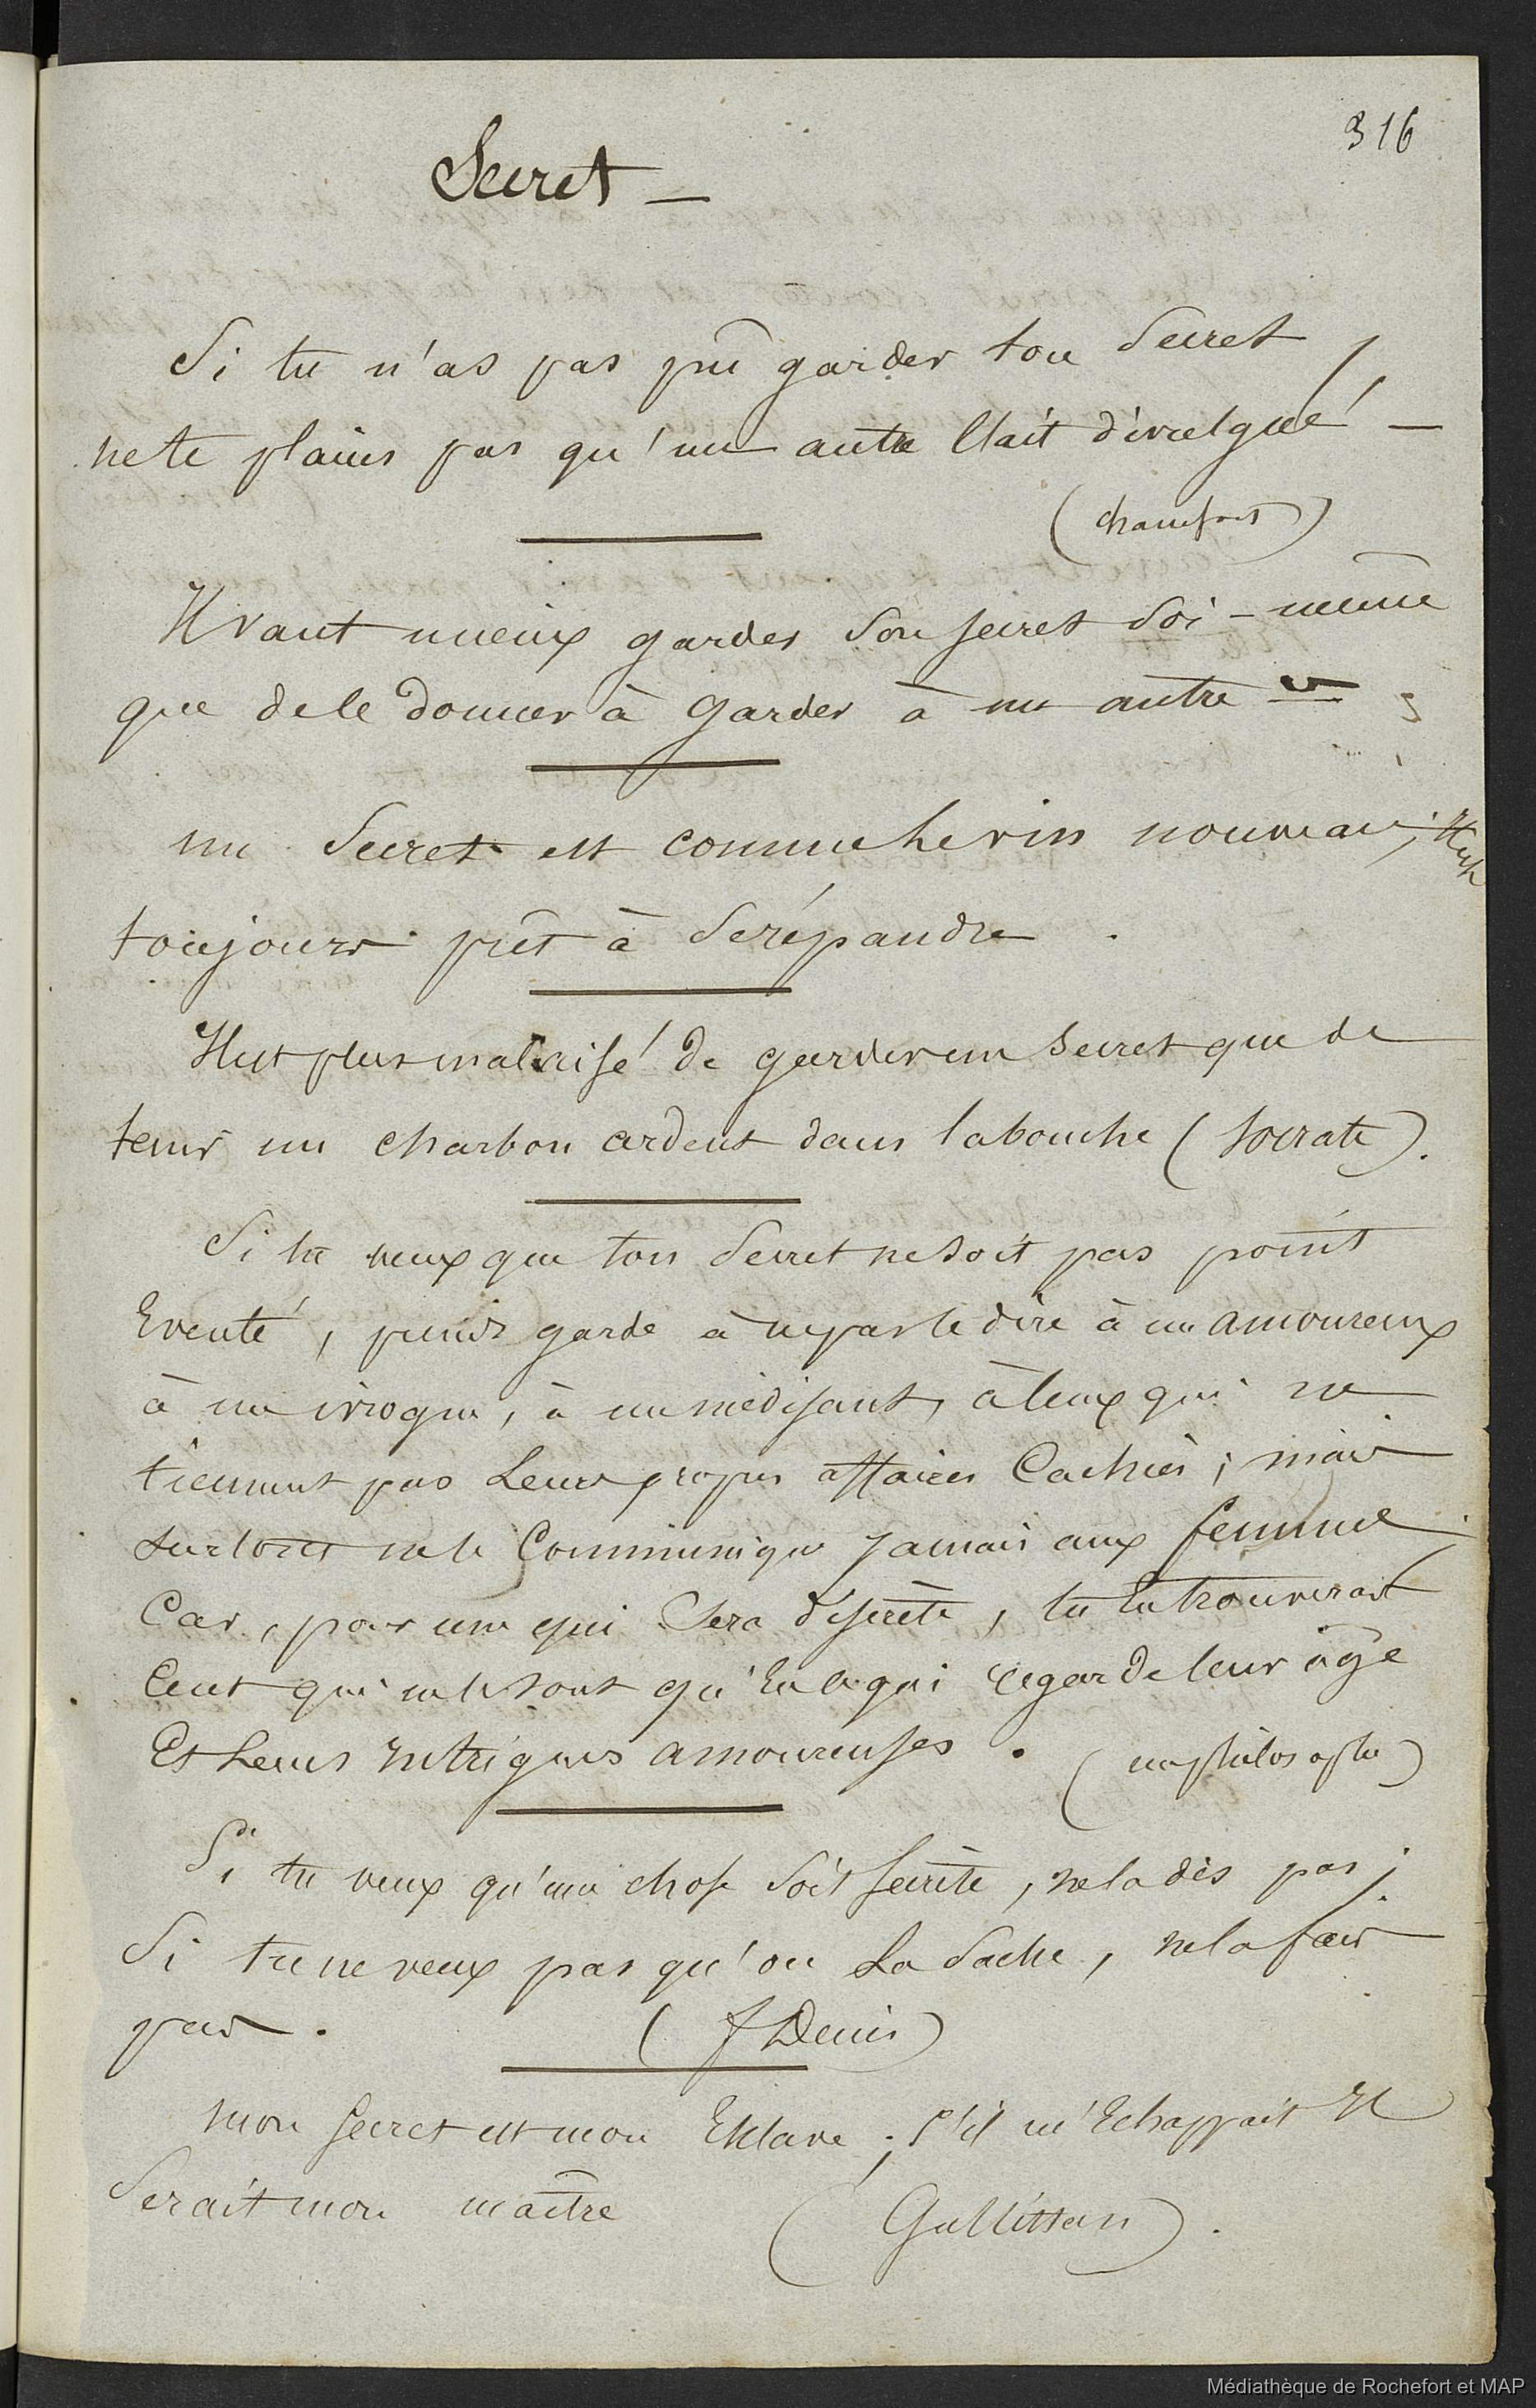 316
Secret —
Si tu n'as pas pû garder ton Secret,
ne te plains pas qu'un autre l'ait divulgué —
(chamfort)
Il vaut mieux garder son secret soi-même
que de le donner à garder à un autre
un Secret est comme le vin nouveau, il est
toujours prêt à se répandre.
Il est plus malaisé de garder un secret que de
tenir un charbon ardent dans la bouche (Socrate).
Si tu veux que ton Secret ne soit pas point
Eventé, prends garde à ne pas le dire à un amoureux
à un ivrogne, à un médisant, à ceux qui ne
tiennent pas Leurs propres affaires Cachées; mais
surtout ne le Communique jamais aux femmes
Car, pour une qui Sera discrète, tu En trouverais
Cent qui ne le sont qu'En ce qui regarde leur âge
Et Leurs intrigues amoureuses. (un philosophe)
Si tu veux qu'une chose Soit secrète, ne la dis pas;
Si tu ne veux pas qu'on La Sache, ne la fais
pas. (f Denis)
Mon secret est mon Esclave; s'il m'Echappait Il
Serait mon maître (Gullistan).
Médiathèque de Rochefort et MAP